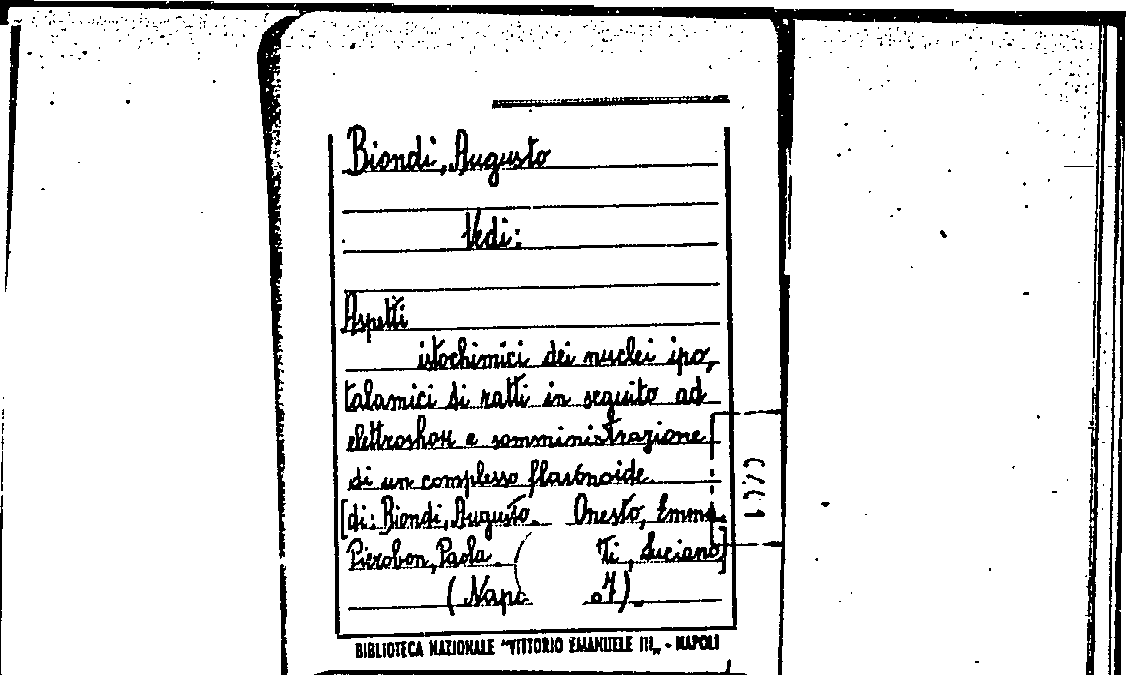 Biondi, Augusto
Vedi:
Aspetti
istochimici dei nuclei ipo,
talamici di ratti in seguito ad
elettroshok e somministrazione
di un complesso flavonoide.
[di: Biondi, Augusto. Onesto, Emma.
Pierobon, Paola. Ti, Luciano]
(Napo
BIBLIOTECA NAZIONALE "VITTORIO EMANUELE III„ - NAPOLI